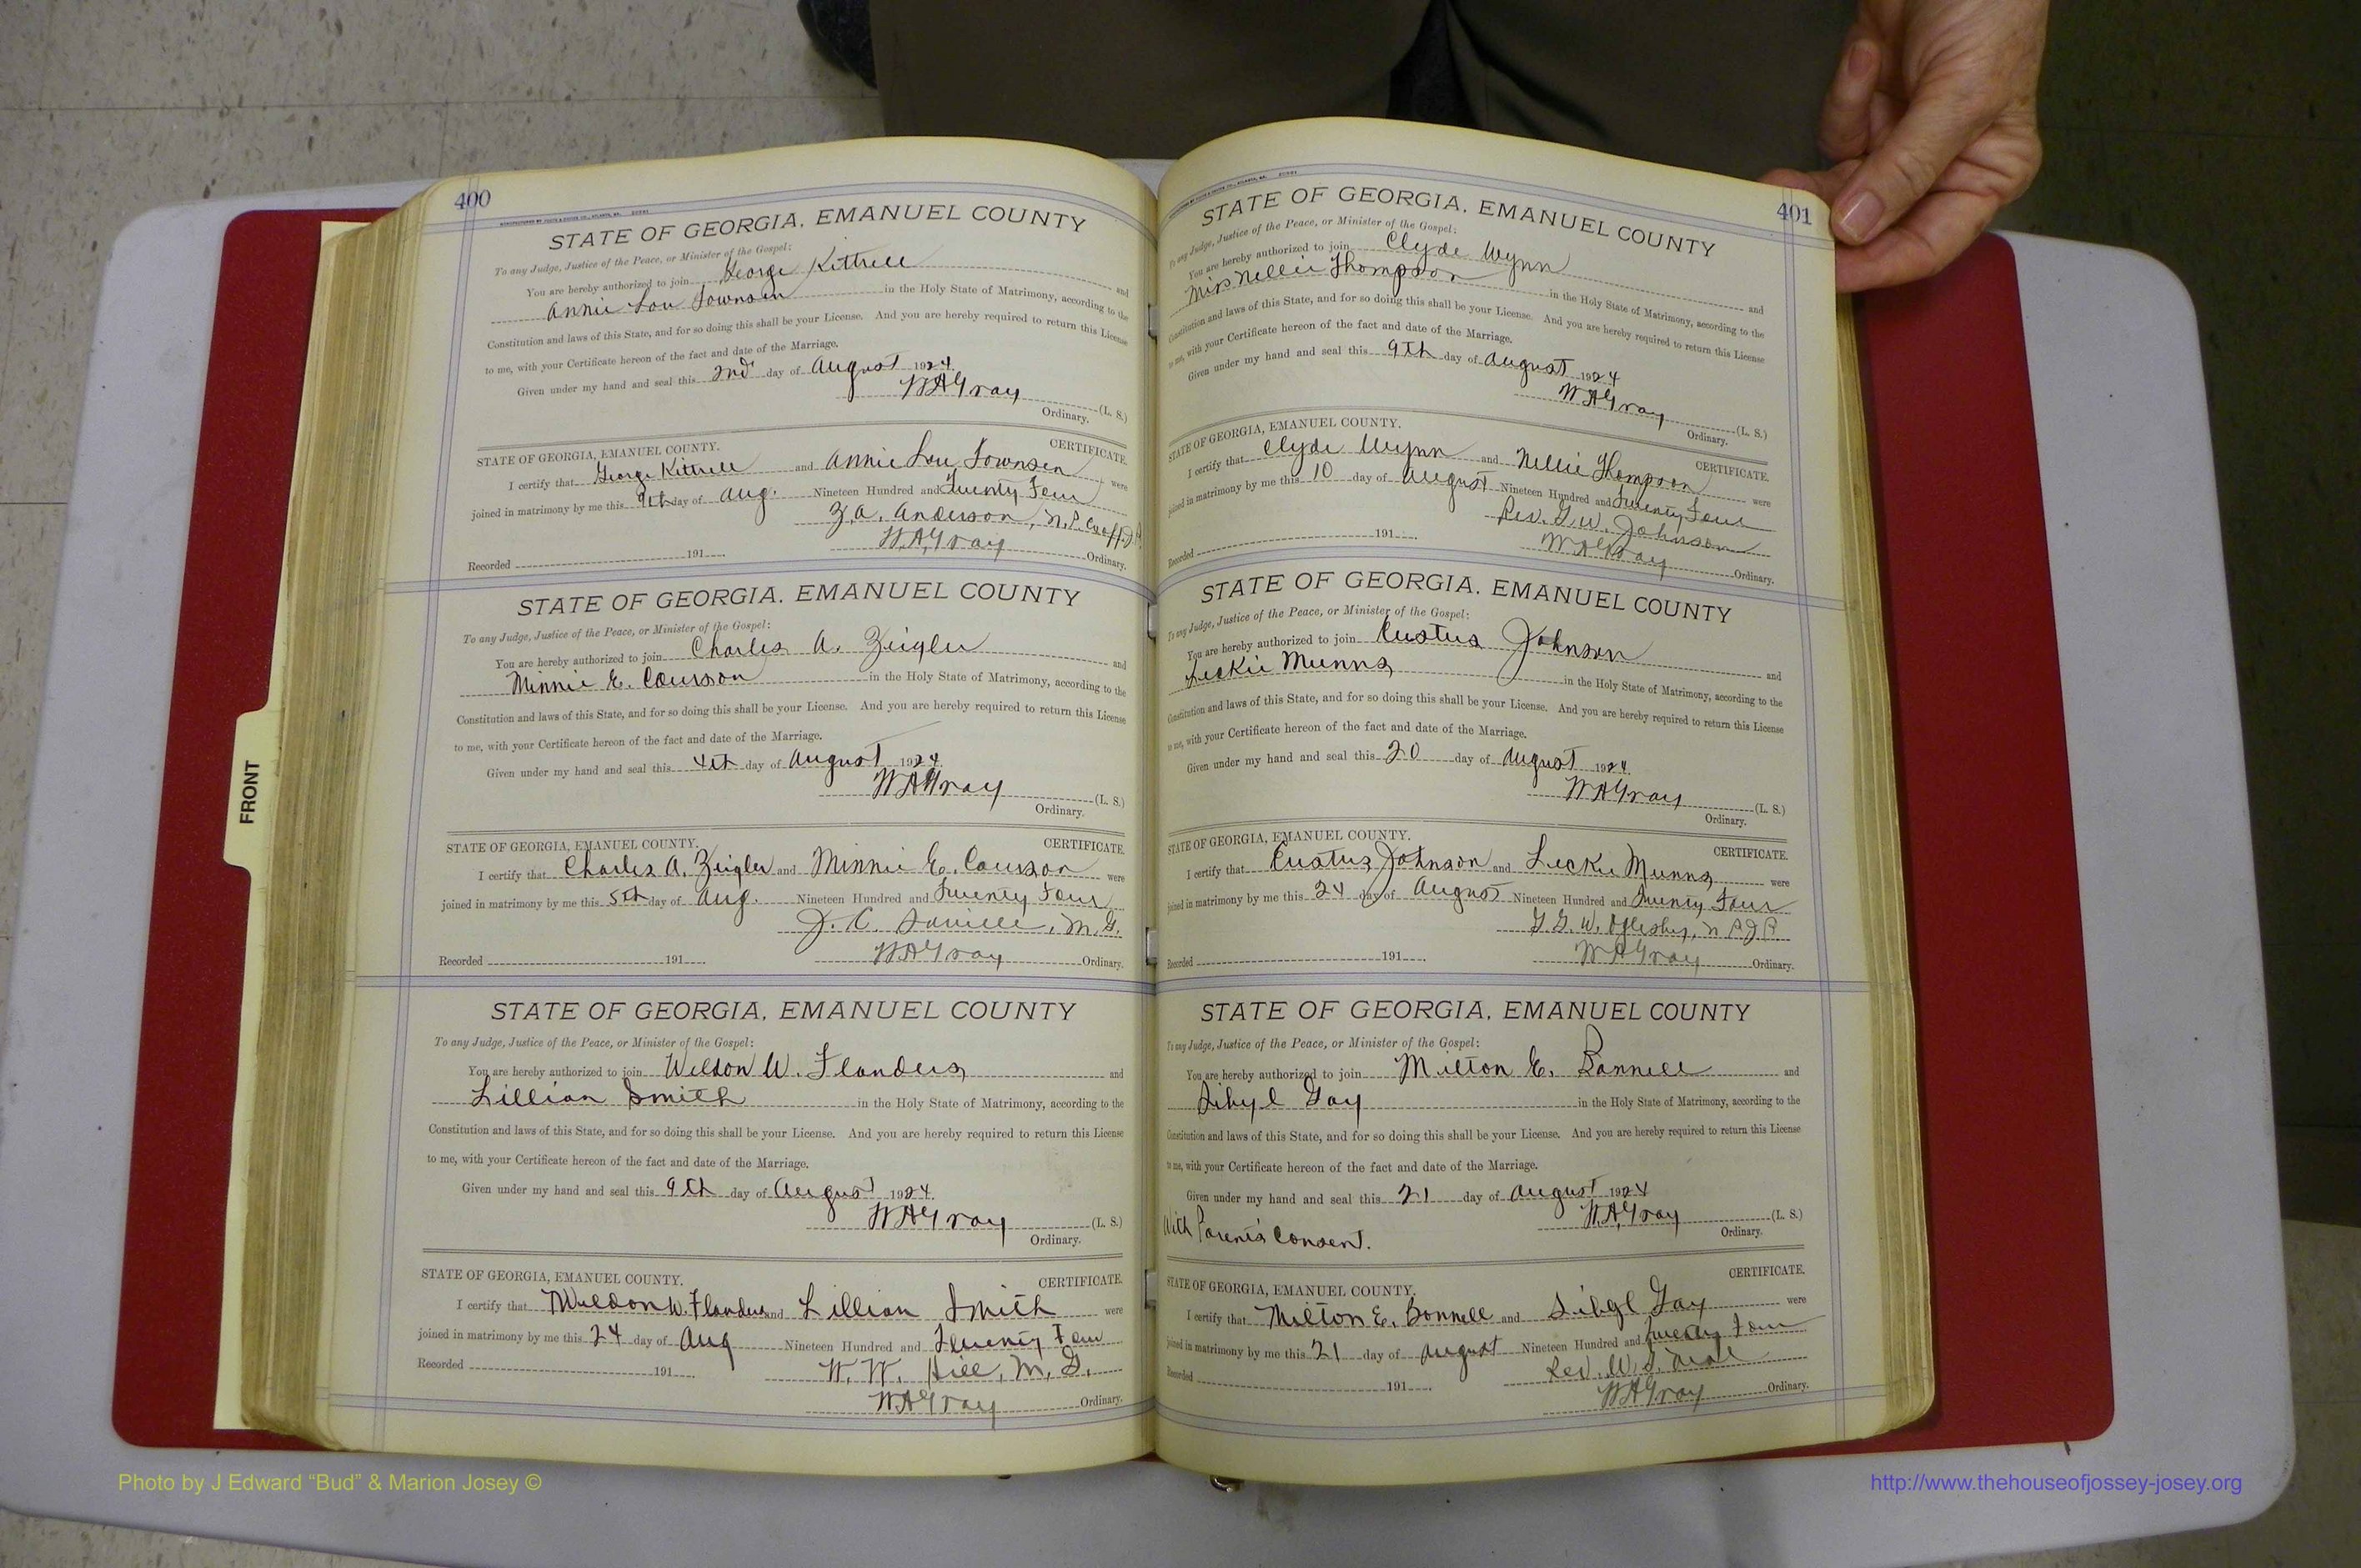 400
STATE OF GEORGIA, EMANUEL COUNTY
To any Judge, Justice of the Peace, or Minister of the Gospel:
You are hereby authorized to join George Kittrell and
Annie Lou Townsen in the Holy State of Matrimony, according to the
Constitution and laws of this State, and for so doing this shall be your License. And you are hereby required to return this License
to me, with your Certificate hereon of the fact and date of the Marriage.
Given under my hand and seal this 2nd day of August 1924.
W A Gray (L. S.)
Ordinary.
STATE OF GEORGIA, EMANUEL COUNTY. CERTIFICATE.
I certify that George Kittrell and Annie Lou Townsen were
joined in matrimony by me this 9th day of Aug. Nineteen Hundred and Twenty Four
Z. A. Anderson, N. P.
Recorded 191 W. A. Gray Ordinary.
STATE OF GEORGIA, EMANUEL COUNTY
To any Judge, Justice of the Peace, or Minister of the Gospel:
You are hereby authorized to join Charles A. Zeigler and
Minnie E. Courson in the Holy State of Matrimony, according to the
Constitution and laws of this State, and for so doing this shall be your License. And you are hereby required to return this License
to me, with your Certificate hereon of the fact and date of the Marriage.
Given under my hand and seal this 4th day of August 1924.
W A Gray (L. S.)
Ordinary.
STATE OF GEORGIA, EMANUEL COUNTY. CERTIFICATE.
I certify that Charles A. Zeigler and Minnie E. Courson were
joined in matrimony by me this 5th day of Aug. Nineteen Hundred and Twenty Four
J. C. M. G.
Recorded 191 W A Gray Ordinary.
STATE OF GEORGIA, EMANUEL COUNTY
To any Judge, Justice of the Peace, or Minister of the Gospel:
You are hereby authorized to join Weldon W. Flanders and
Lillian Smith in the Holy State of Matrimony, according to the
Constitution and laws of this State, and for so doing this shall be your License. And you are hereby required to return this License
to me, with your Certificate hereon of the fact and date of the Marriage.
Given under my hand and seal this 9th day of August 1924.
W A Gray (L. S.)
Ordinary.
STATE OF GEORGIA, EMANUEL COUNTY. CERTIFICATE.
I certify that Weldon W. Flanders and Lillian Smith were
joined in matrimony by me this 24 day of Aug Nineteen Hundred and Twenty Four
Recorded 191 W. W. Hill, M. G.
W A Gray Ordinary.
401
STATE OF GEORGIA, EMANUEL COUNTY
To any Judge, Justice of the Peace, or Minister of the Gospel:
You are hereby authorized to join Clyde Wynn and
Miss Nellie Thompson in the Holy State of Matrimony, according to the
Constitution and laws of this State, and for so doing this shall be your License. And you are hereby required to return this License
to me, with your Certificate hereon of the fact and date of the Marriage.
Given under my hand and seal this 9th day of August 1924
W A Gray (L. S.)
Ordinary.
STATE OF GEORGIA, EMANUEL COUNTY. CERTIFICATE.
I certify that Clyde Wynn and Nellie Thompson were
joined in matrimony by me this 10 day of August Nineteen Hundred and Twenty Four
Rev. G. W. Johnson
Recorded 191 W A Gray Ordinary.
STATE OF GEORGIA, EMANUEL COUNTY
To any Judge, Justice of the Peace, or Minister of the Gospel:
You are hereby authorized to join Eustus Johnson and
Leckie Munns in the Holy State of Matrimony, according to the
Constitution and laws of this State, and for so doing this shall be your License. And you are hereby required to return this License
to me, with your Certificate hereon of the fact and date of the Marriage.
Given under my hand and seal this 20 day of August 1924.
W A Gray (L. S.)
Ordinary.
STATE OF GEORGIA, EMANUEL COUNTY. CERTIFICATE.
I certify that Eustus Johnson and Leckie Munns were
joined in matrimony by me this 24 day of August Nineteen Hundred and Twenty Four
G. W. Oglesby, N P J P
Recorded 191 W A Gray Ordinary.
STATE OF GEORGIA, EMANUEL COUNTY
To any Judge, Justice of the Peace, or Minister of the Gospel:
You are hereby authorized to join Milton E. Bonnell and
Sibyl Gay in the Holy State of Matrimony, according to the
Constitution and laws of this State, and for so doing this shall be your License. And you are hereby required to return this License
to me, with your Certificate hereon of the fact and date of the Marriage.
Given under my hand and seal this 21 day of August 1924
W. A. Gray (L. S.)
With Parents Consent. Ordinary.
STATE OF GEORGIA, EMANUEL COUNTY. CERTIFICATE.
I certify that Milton E. Bonnell and Sibyl Gay were
joined in matrimony by me this 21 day of August Nineteen Hundred and Twenty Four
Recorded Rev. W. S.
191 W A Gray Ordinary.
FRONT
Photo by J Edward “Bud” & Marion Josey ©
http://www.thehouseofjossey-josey.org